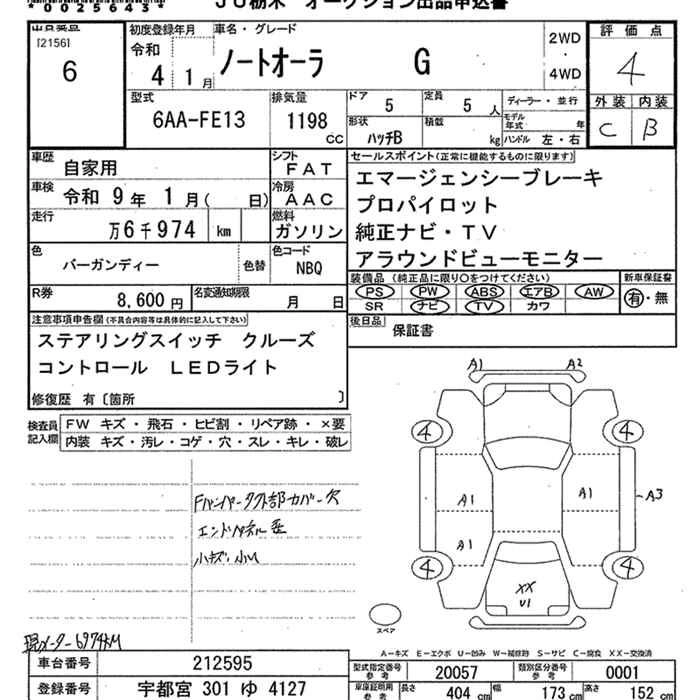 *0025643*
JU栃木 オークション出品申込書
[2156]
6
初度登録年月
令和
4 1月
車名・グレード
ノートオーラ G
2WD
・
4WD
評価点
4
外装 内装
C B
型式
6AA-FE13
排気量
1198
cc
ドア
5
定員
5人
形状
ハッチB
積載
kg
ディーラー・並行
モデル年式
年
ハンドル 左・右
車歴
自家用
シフト
FAT
車検
令和 9年 1月( 日)
冷房
AAC
走行
万6千974 km
燃料
ガソリン
色
バーガンディー
色替
色コード
NBQ
R券
8,600円
名変通知期限
月 日
セールスポイント(正常に機能するものに限ります)
エマージェンシーブレーキ
プロパイロット
純正ナビ・TV
アラウンドビューモニター
装備品(純正品に限り○をつけてください)
PS PW ABS エアB AW
SR ナビ TV カワ
新車保証書
有・無
後日品
保証書
注意事項申告欄(不具合内容等は具体的に記入して下さい)
ステアリングスイッチ クルーズ
コントロール LEDライト
修復歴 有〔箇所 〕
検査員
記入欄
FW キズ・飛石・ヒビ割・リペア跡・×要
内装 キズ・汚レ・コゲ・穴・スレ・キレ・破レ
エンドパネル歪
小キズ・小U
現メーター6974KM
A1 A2
4 4
A1 A1 A3
A1
4 4
XX
U1
スペア
A-キズ E-エクボ U-凹み W-補修跡 S-サビ C-腐食 XX-交換済
車台番号
212595
登録番号
宇都宮 301 ゆ 4127
型式指定番号
参考
20057
類別区分番号
参考
0001
車庫証明用
参考
長さ
404 cm
幅
173 cm
高さ
152 cm